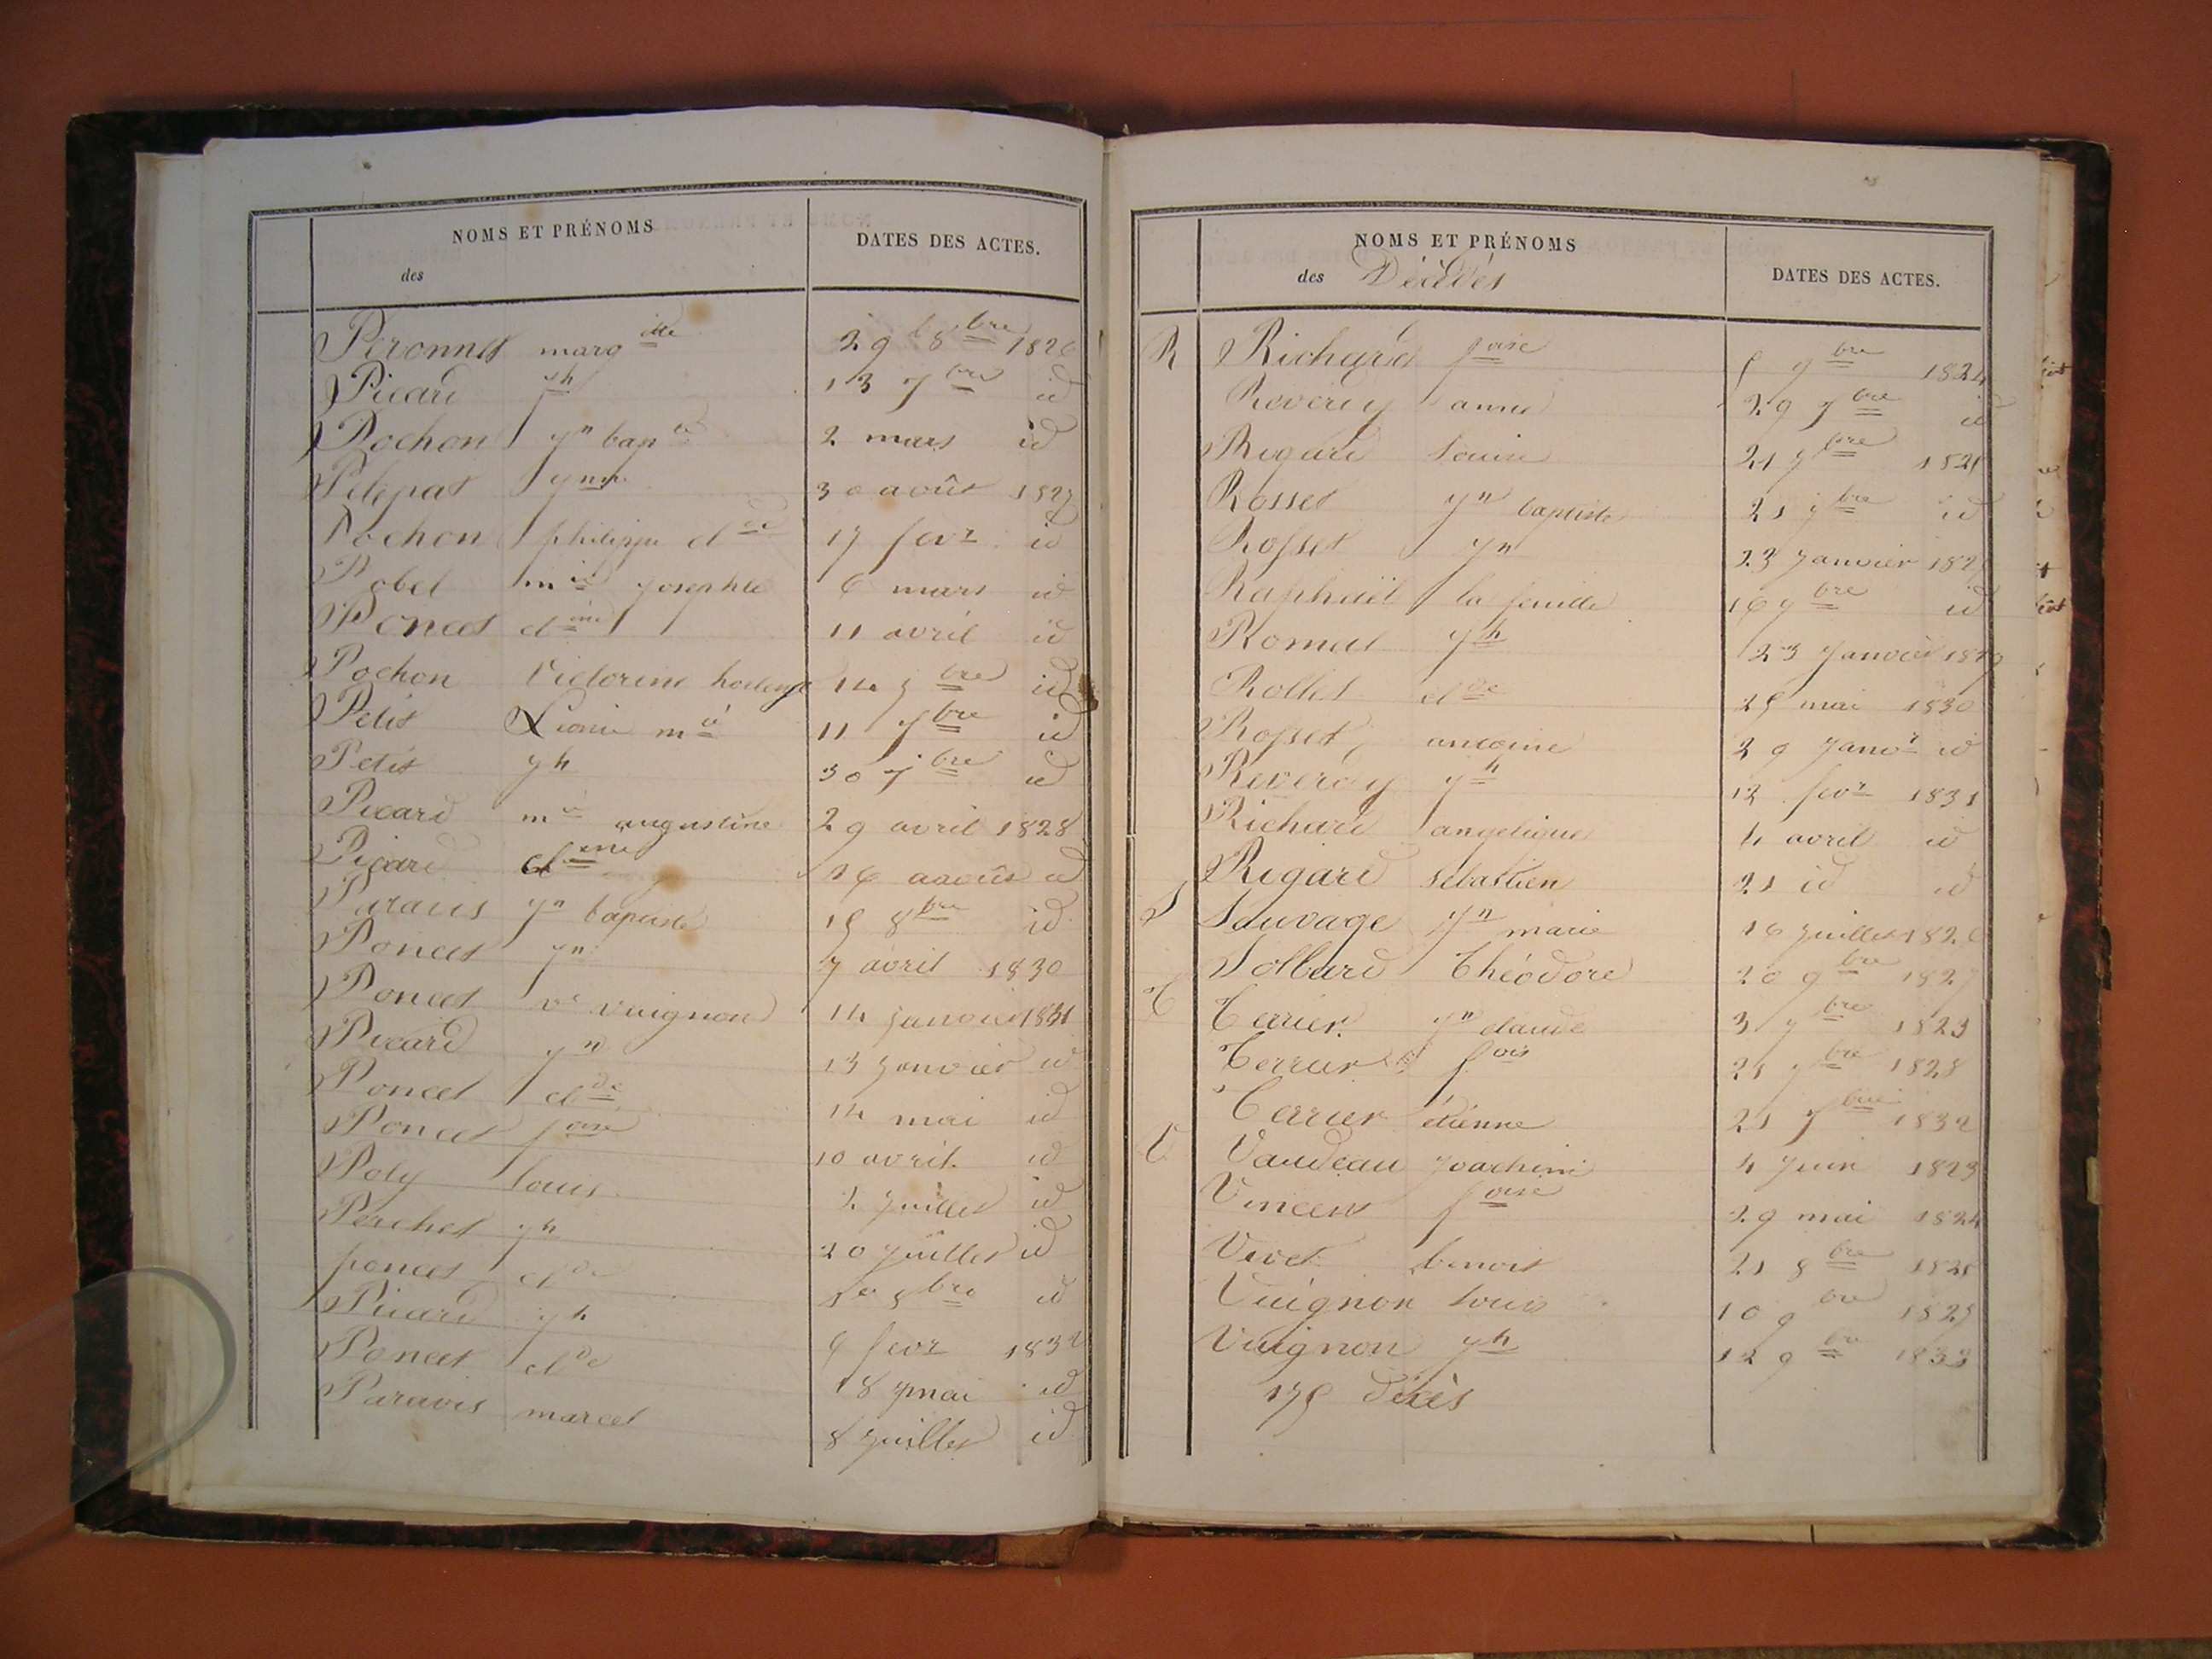 NOMS ET PRÉNOMS
des
DATES DES ACTES.
Peronnet marg itte 29 8bre 1826
Picard jh 13 7bre id
Pochon jn bapte 2 mars id
Pelepat 30 août 1827
Pochon philippe clde 17 fevr id
Pobel mie josephte 6 mars id
Poncet cline 11 avril id
Pochon Victorine 14 bre id
Petit mie 11 7bre id
Petit jh 30 7bre id
Picard mie augustine 29 avril 1828
Picard cline 26 août id
Paravis jn baptiste 15 8bre id
Poncet jn 7 avril 1830
Poncet ve vuignon 14 janvier 1831
Picard jn 13 janvier id
Poncet clde 14 mai id
Poncet foise 10 avril id
Poly Louis 2 juillet id
Perchet jh 20 juillet id
poncet clde bre id
Picard jh 6 fevr 1832
Poncet clde 18 mai id
Paravis marcel 8 juillet id
NOMS ET PRÉNOMS
des Décédés
DATES DES ACTES.
R Richard foise bre 1824
Reverdy anne 29 7bre id
Rigard Louise 21 bre
Rosset jn baptiste 21 bre id
Rosset jn 23 janvier
Raphaël la feuille 16 bre id
Romet jh 23 janvier
Rollet clde 25 mai 1830
Rosset antoine 29 janvr id
Reverdy jh 12 fevr 1831
Richard angelique 4 avril id
Rigard sebastien 21 id id
S Sauvage jn marie 16 juillet 1826
Sollard Théodore 20 9bre 1827
T Terrier jn claude 3 bre 1823
Terrier fois 21 bre 1828
Terrier étienne 21 7bre 1832
V Vaudeau joachim 4 juin 1823
Vincent foise 29 mai 1824
Vivet benoit 21 8bre
Vuignon Louis 10 9bre
Vuignon jh 12 9bre
175 Décès